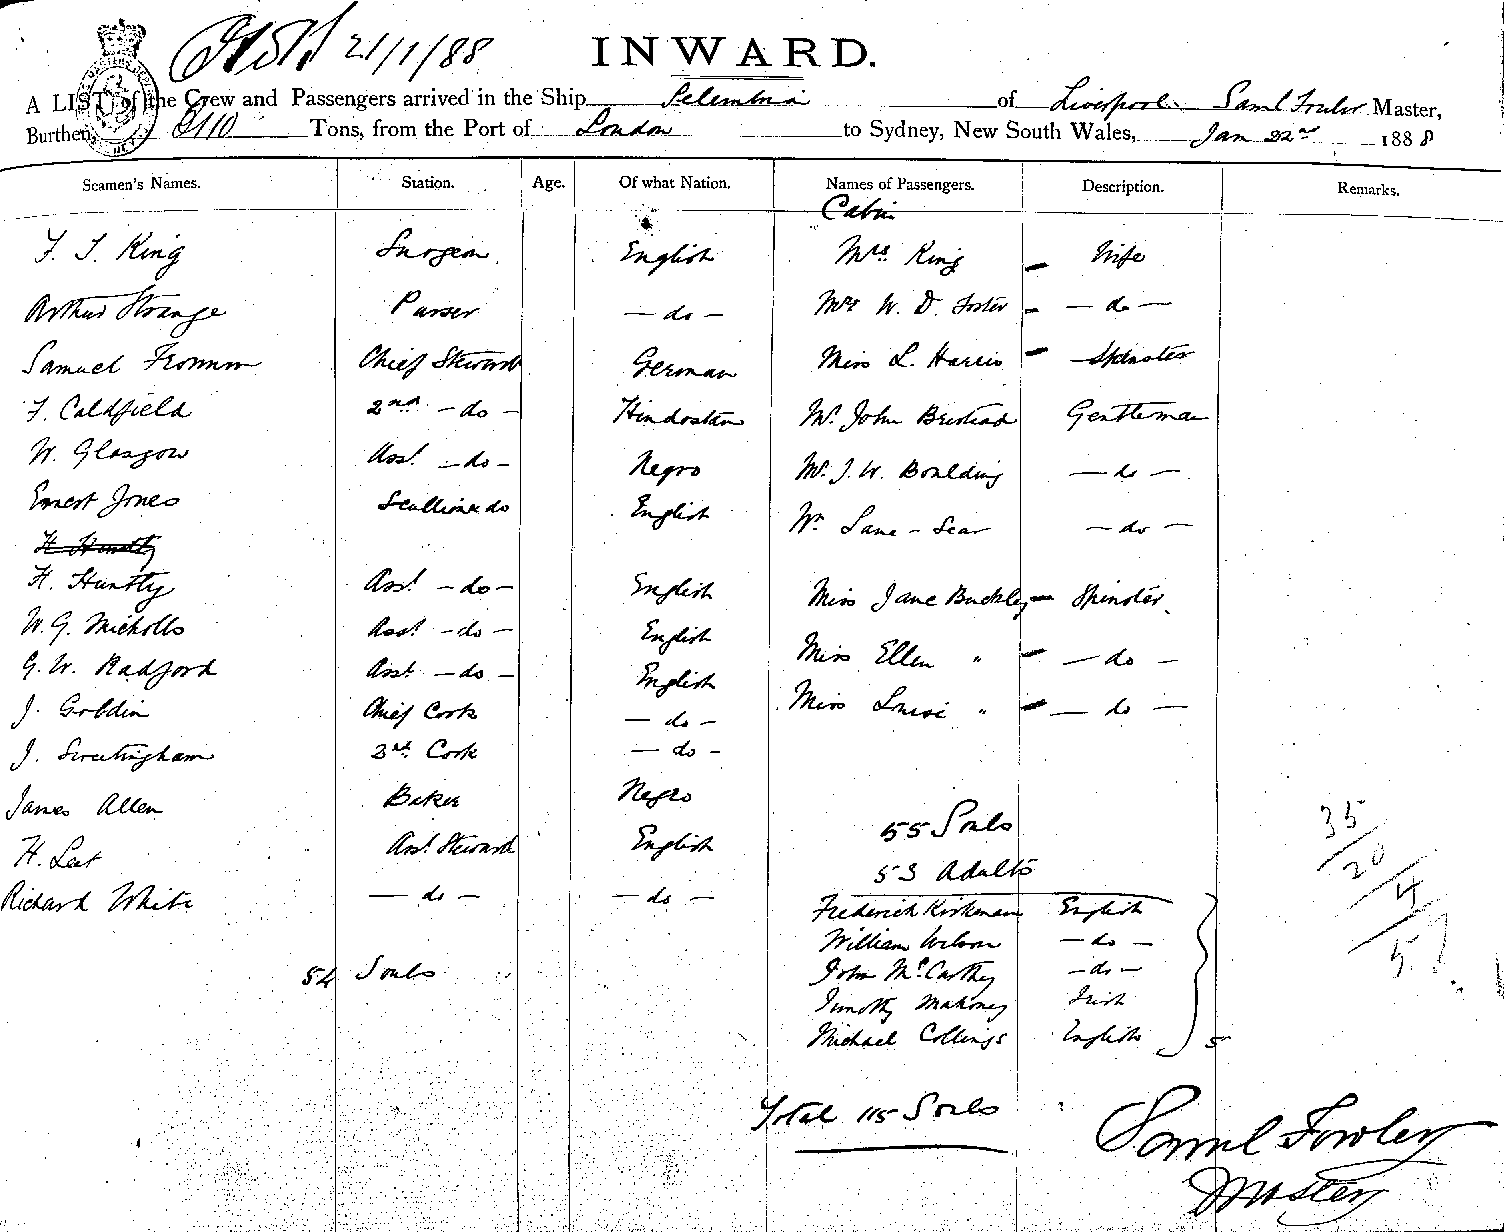 21/1/88
INWARD.
A LIST of the Crew and Passengers arrived in the Ship Selembria of Liverpool Saml Fowler Master,
Burthen, 3110 Tons, from the Port of London to Sydney, New South Wales, Jan 22nd 1888
Seamen's Names. Station. Age. Of what Nation. Names of Passengers. Description. Remarks.
Cabin
F. J. King Surgeon English Mrs King - Wife
Arthur Strange Purser - do - Mrs W. D. Foster - - do -
Samuel Chief Steward German Miss L. Harris - Spinster
F. Caldfield 2nd - do - Hindostan Mr John Gentleman
W. Glasgow Asst - do - Negro Mr J. W. Boulding - do -
Ernest Jones Scullion do English Wm Lane - Sear - do -
H. Huntly
H. Huntly Asst - do - English Miss Jane Buckley - Spinster
W. G. Nicholls Asst - do - English Miss Ellen " - - do -
G. W. Radford Asst - do - English Miss Louise " - - do -
J. Goldin Chief Cook - do -
J. Sweetingham 2nd Cook - do -
James Allen Baker Negro
55 Souls
H. Leat Asst Steward English
53 Adults
Richard White - do - - do -
Frederick Kirkman English
William Wilson - do -
John McCarthy - do -
54 Souls
Timothy Mahoney Irish
Michael Collings English 5
35
/20
/4
/5
Total 115 Souls
Saml Fowler
Master